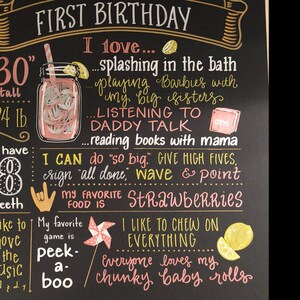 FIRST BIRTHDAY
I love...
30"
tall
...splashing in the bath
playing Barbies with
my big sisters
...LISTENING TO
DADDY TALK
4 lb
...reading books with mama
have
8
teeth
I CAN do "so big," GIVE HIGH FIVES,
sign "all done," wave & point
MY FAVORITE
FOOD IS STRAWBERRIES
like to
move
the
music
My favorite
game is
peek-
a-
boo
I LIKE TO CHEW ON
EVERYTHING
Everyone loves my
chunky baby rolls